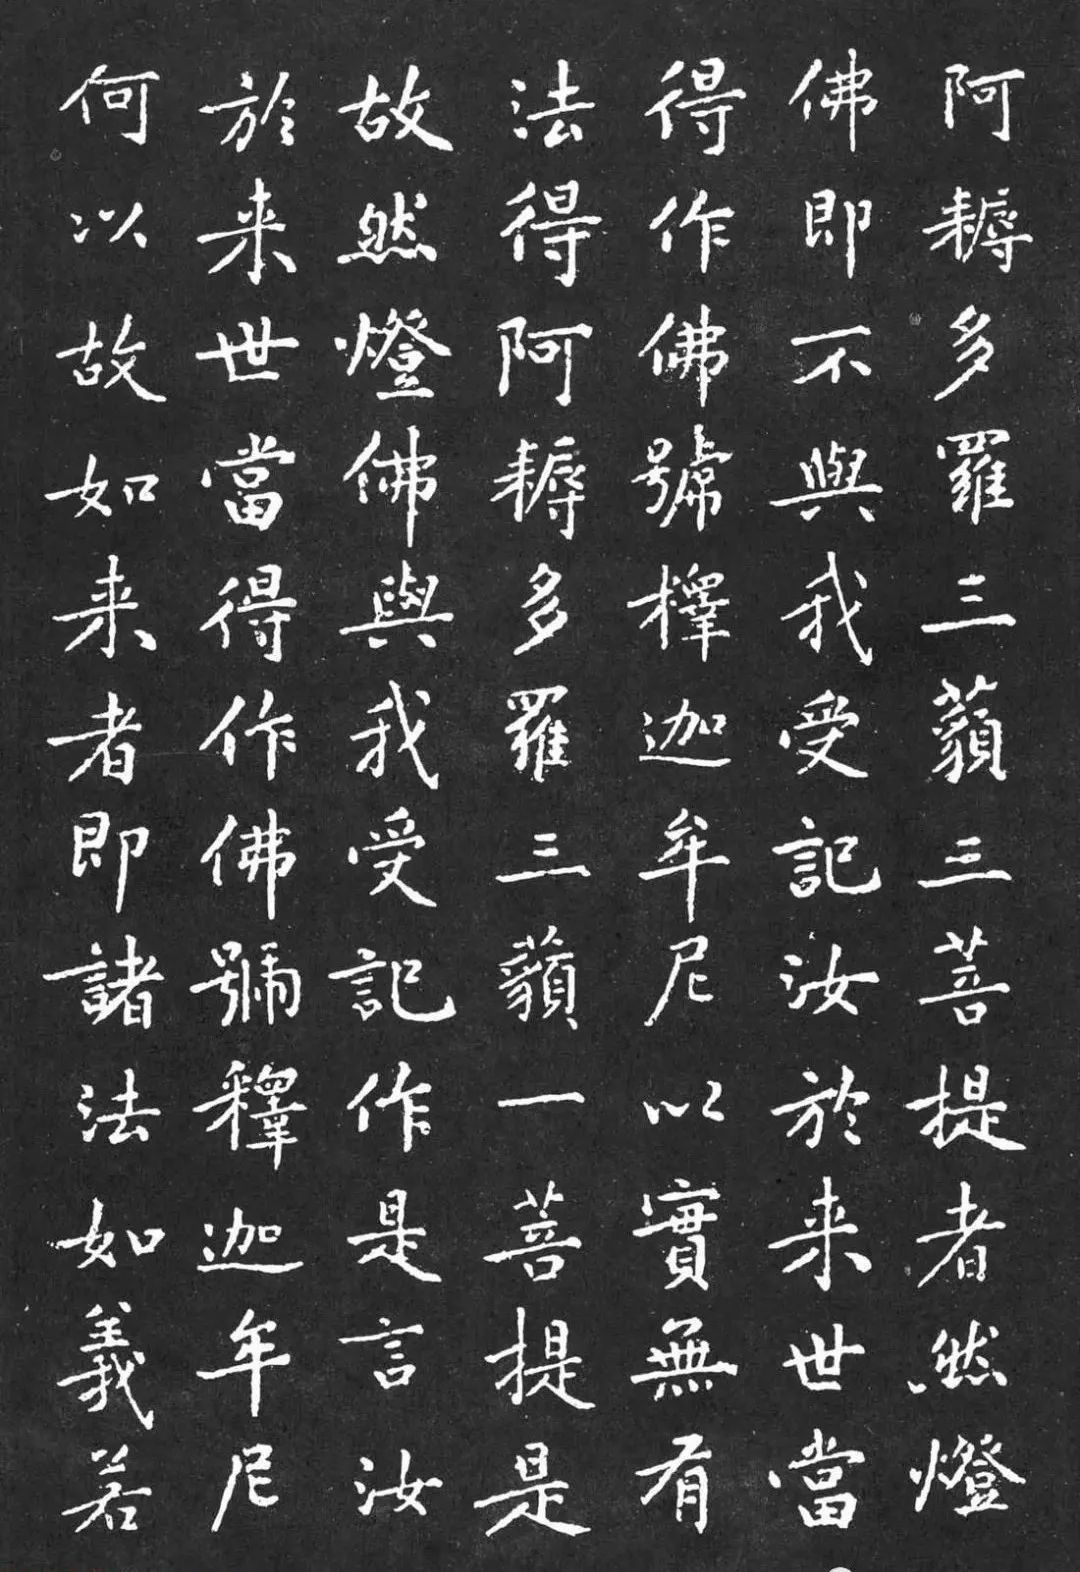 阿耨多羅三藐三菩提者然燈
佛即不與我受記汝於来世當
得作佛號釋迦牟尼以實無有
法得阿耨多羅三藐一菩提是
故然燈佛與我受記作是言汝
於来世當得作佛號釋迦牟尼
何以故如来者即諸法如義若